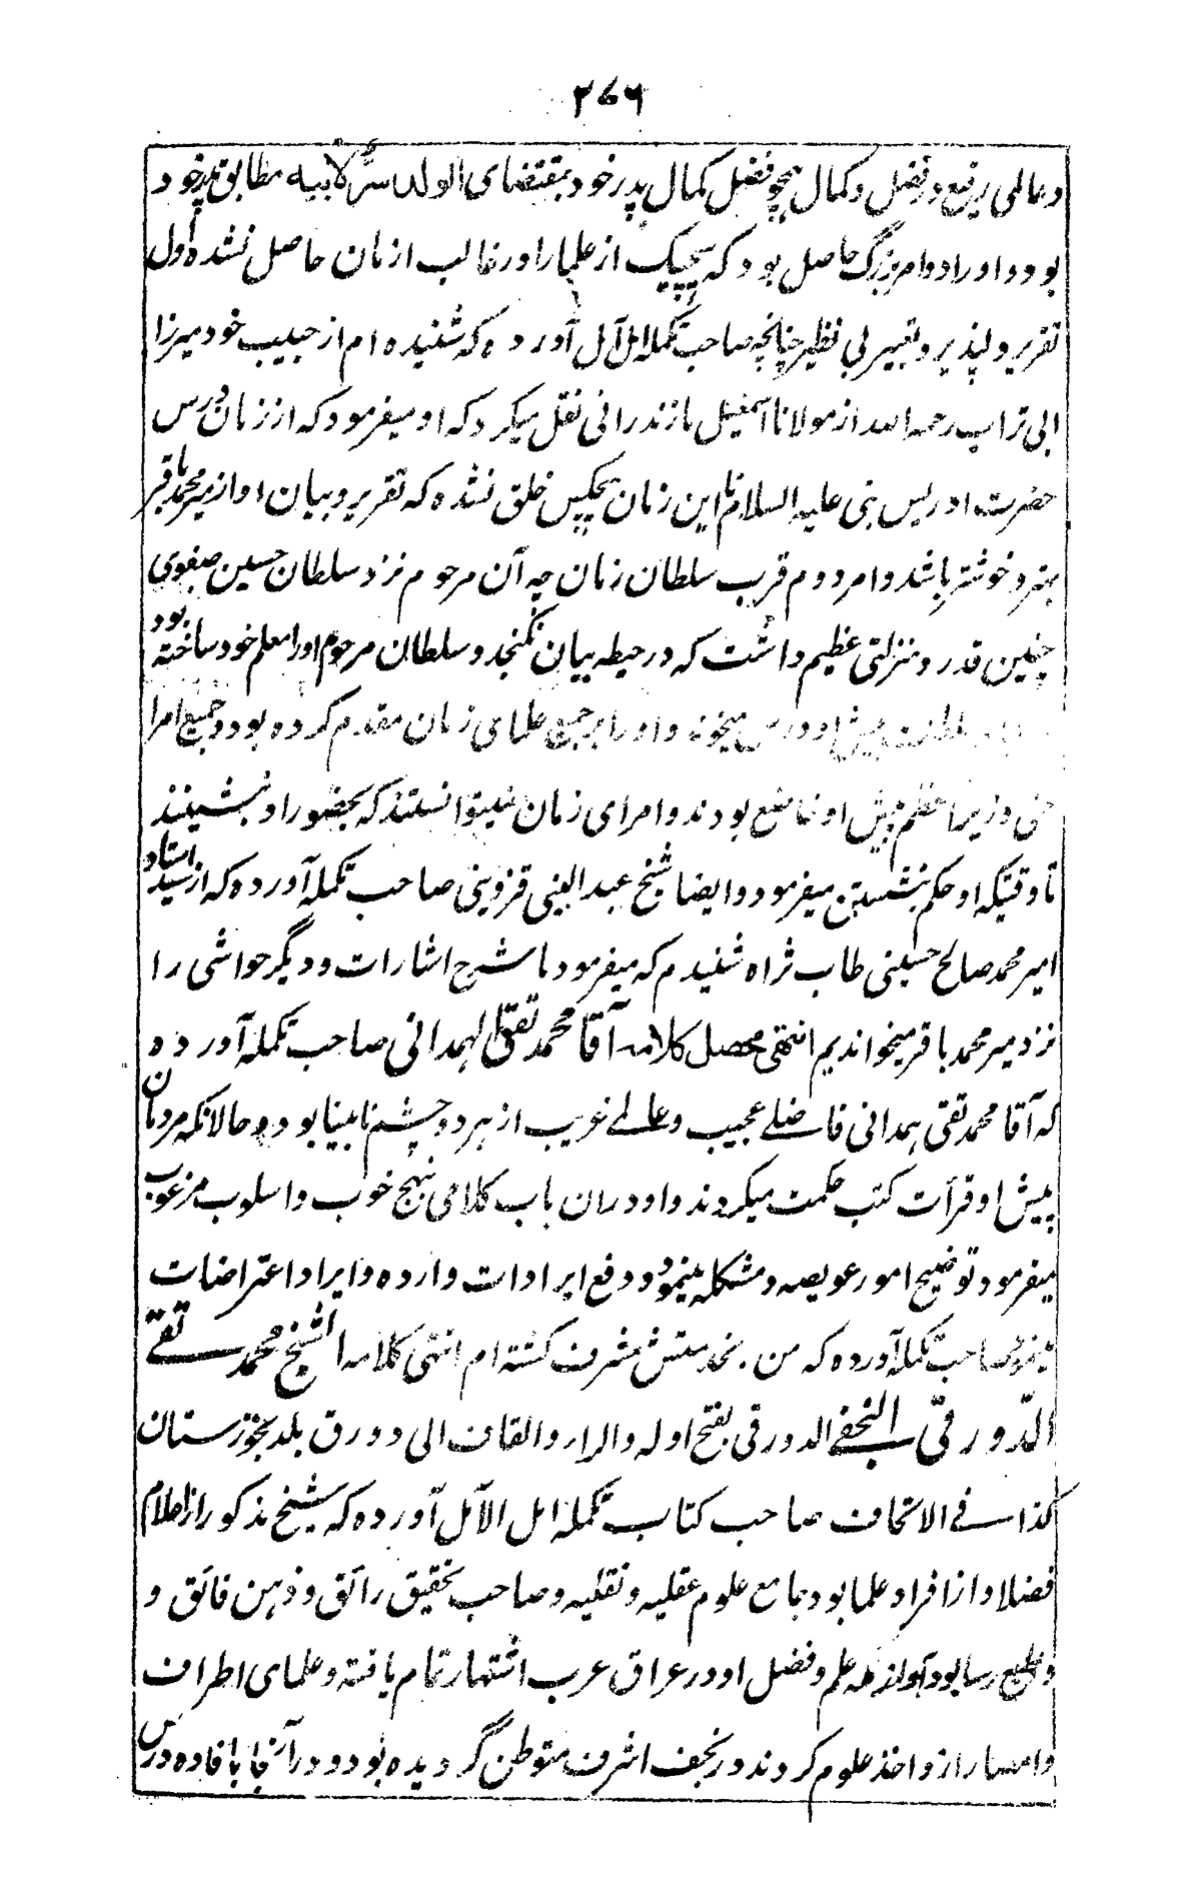 ۲۷۶
و عالمی رفیع و فضل و کمال همچو فضل کمال پدر خود بمقتضای الولد سرٌّ لابیه مطابق پدر خود
بود و او را دو امر بزرگ حاصل بود که هیچیک از علما را در غالب ازمان حاصل نشده اول
تقریر دلپذیر و تعبیر بی نظیر چنانچه صاحب تکمله امل آمل آورده که شنیده ام از حبیب خود میرزا
ابی تراب رحمه الله از مولانا اسمعیل مازندرانی نقل میکرد که او میفرمود که از زمان درس
حضرت ادریس نبی علیه السلام تا این زمان هیچکس خلق نشده که تقریر و بیان او از میر محمد باقر
بهتر و خوشتر باشد و امر دوم قرب سلطان زمان چه آن مرحوم نزد سلطان حسین صفوی
چنین قدر و منزلتی عظیم داشت که در حیطه بیان نگنجد و سلطان مرحوم او را معلم خود ساخته بود
پیش او درس میخواند و او را بر جمیع علمای زمان مقدم کرده بود و جمیع امرا
حتی وزیر اعظم پیش او خاضع بودند و امرای زمان نمیتوانستند که بحضور او بنشینند
تا وقتیکه او حکم بنشستن میفرمود و ایضا شیخ عبد النبی قزوینی صاحب تکمله آورده که از سید استاد
امیر محمد صالح حسینی طاب ثراه شنیدم که میفرمود ما شرح اشارات و دیگر حواشی را
نزد میر محمد باقر میخواندیم انتهی محصل کلامه آقا محمد تقی الهمدانی صاحب تکمله آورده
که آقا محمد تقی همدانی فاضلے عجیب و عالمے غریب از هر دو چشم نابینا بود و حالانکه مردمان
پیش او قرأت کتب حکمت میکردند و او در ان باب کلامی نهج خوب و اسلوب مرغوب
میفرمود توضیح امور عویصه و مشکله مینمود و دفع ایرادات وارده و ایراد اعتراضات
مینمود صاحب تکمله آورده که من بخدمتش مشرف گشته ام انتهی کلامه الشیخ محمد تقے
الدّورقیّ النجفے الدورقی بفتح اوله و الراء و القاف الی دورق بلد بخوزستان
کذا فے الاتحاف صاحب کتاب تکمله امل الآمل آورده که شیخ مذکور از اعلام
فضلا و از افراد علما بود جامع علوم عقلیه و نقلیه و صاحب تحقیق رائق و ذهن فائق و
و طبع رسا بود آوازه علم و فضل او در عراق عرب اشتهار تمام یافته و علمای اطراف
و امصار از و اخذ علوم کردند در نجف اشرف متوطن گردیده بود و در آنجا بافاده درس